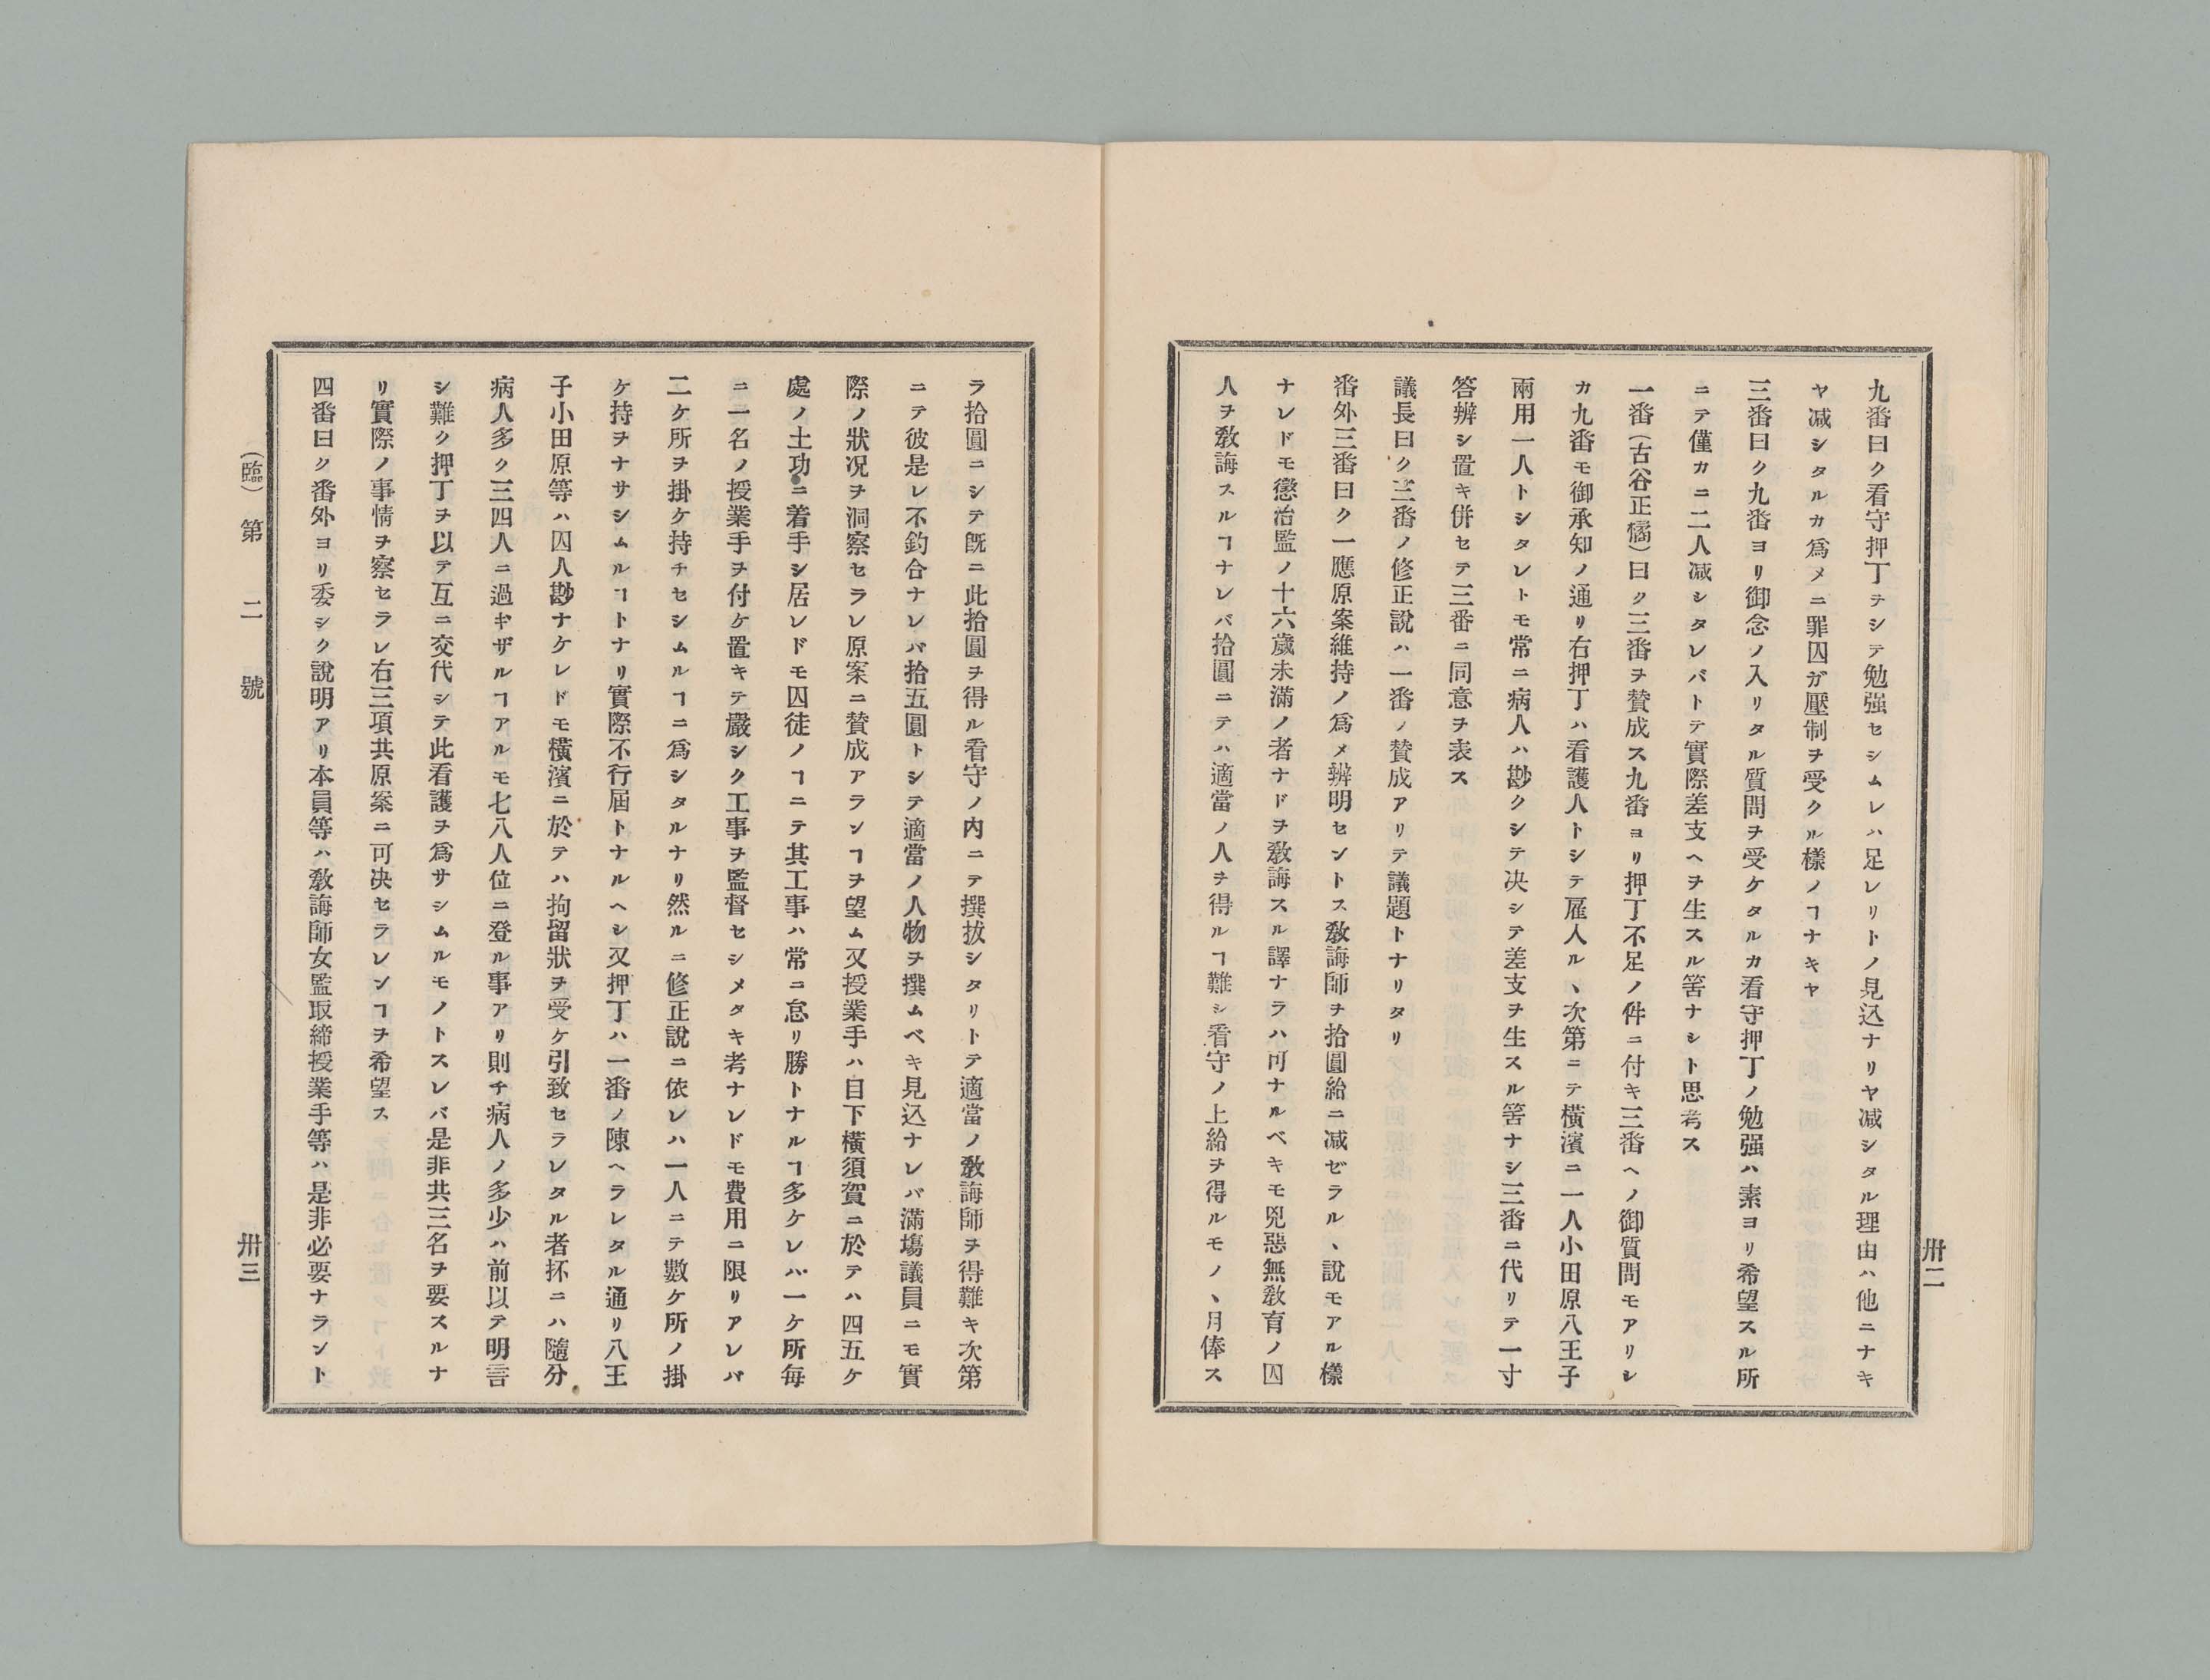 九番曰ク看守押丁ヲシテ勉强セシムレハ足レリトノ見込ナリヤ减シタル理由ハ他ニナキ
ヤ减シタルカ爲メニ罪囚ガ壓制ヲ受クル樣ノヿナキヤ
三番曰ク九番ヨリ御念ノ入リタル質問ヲ受ケタルカ看守押丁ノ勉强ハ素ヨリ希望スル所
ニテ僅カニ二人减シタレバトテ實際差支ヘヲ生スル筈ナシト思考ス
一番(古谷正橘)曰ク三番ヲ賛成ス九番ヨリ押丁不足ノ件ニ付キ三番ヘノ御質問モアリシ
カ九番モ御承知ノ通リ右押丁ハ看護人トシテ雇人ル、次第ニテ橫濱ニ一人小田原八王子
兩用一人トシタレトモ常ニ病人ハ尠クシテ决シテ差支ヲ生スル筈ナシ三番ニ代リテ一寸
答辨シ置キ併セテ三番ニ同意ヲ表ス
議長曰ク三番ノ修正說ハ一番ノ賛成アリテ議題トナリタリ
番外三番曰ク一應原案維持ノ爲メ辨明セントス敎誨師ヲ拾圓給ニ减ゼラル、說モアル樣
ナレドモ懲治監ノ十六歲未滿ノ者ナドヲ敎誨スル譯ナラハ可ナルベキモ兇惡無敎育ノ囚
人ヲ敎誨スルヿナレバ拾圓ニテハ適當ノ人ヲ得ルヿ難シ看守ノ上給ヲ得ルモノ、月俸ス
卅二
ラ拾圓ニシテ旣ニ此拾圓ヲ得ル看守ノ內ニテ撰拔シタリトテ適當ノ敎誨師ヲ得難キ次第
ニテ彼是レ不釣合ナレバ拾五圓トシテ適當ノ人物ヲ撰ムベキ見込ナレバ滿塲議員ニモ實
際ノ狀况ヲ洞察セラレ原案ニ賛成アランヿヲ望ム又授業手ハ目下橫須賀ニ於テハ四五ケ
處ノ土功ニ着手シ居レドモ囚徒ノヿニテ其工事ハ常ニ怠リ勝トナルヿ多ケレバ一ケ所每
ニ一名ノ授業手ヲ付ケ置キテ嚴シク工事ヲ監督セシメタキ考ナレドモ費用ニ限リアレバ
二ケ所ヲ掛ケ持チセシムルヿニ爲シタルナリ然ルニ修正說ニ依レハ一人ニテ數ケ所ノ掛
ケ持ヲナサシムルヿトナリ實際不行屆トナルヘシ又押丁ハ一番ノ陳ヘラレタル通リ八王
子小田原等ハ囚人尠ナケレドモ橫濱ニ於テハ拘留狀ヲ受ケ引致セラレタル者抔ニハ隨分
病人多ク三四人ニ過キザルヿアルモ七八人位ニ登ル事アリ則チ病人ノ多少ハ前以テ明言
シ難ク押丁ヲ以テ互ニ交代シテ此看護ヲ爲サシムルモノトスレバ是非共三名ヲ要スルナ
リ實際ノ事情ヲ察セラレ右三項共原案ニ可决セラレンヿヲ希望ス
四番曰ク番外ヨリ委シク說明アリ本員等ハ敎誨師女監取締授業手等ハ是非必要ナラント
(臨)第二號
卅三